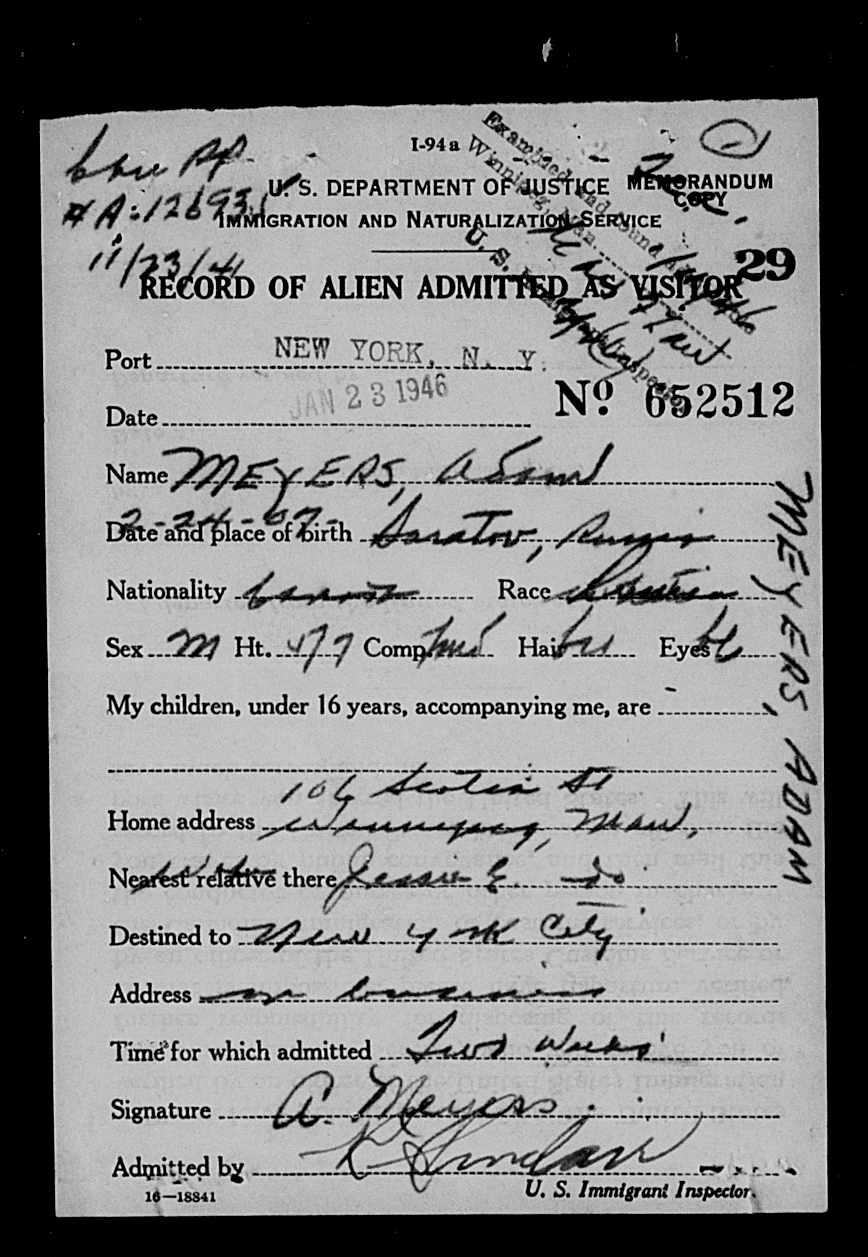 I-94a
U. S. DEPARTMENT OF JUSTICE
MEMORANDUM COPY
IMMIGRATION AND NATURALIZATION SERVICE
11/23/41
29
RECORD OF ALIEN ADMITTED AS VISITOR
Examined and found
Winnipeg, Man.
U. S. Immigrant Inspector
Port NEW YORK, N. Y.
Date JAN 23 1946
Nº 652512
Name MEYERS, Adam
2-24-07-
Date and place of birth Saratov, Russia
Nationality Race
Sex M Ht. Comp Hair Eyes bl
My children, under 16 years, accompanying me, are -
106 Scotia St
Home address Winnipeg, Man,
Nearest relative there Jessie E. - do
Destined to New York City
Address
Time for which admitted Two Weeks
Signature A. Meyers
Admitted by K Sinclair
16—18841
U. S. Immigrant Inspector.
MEYERS, ADAM